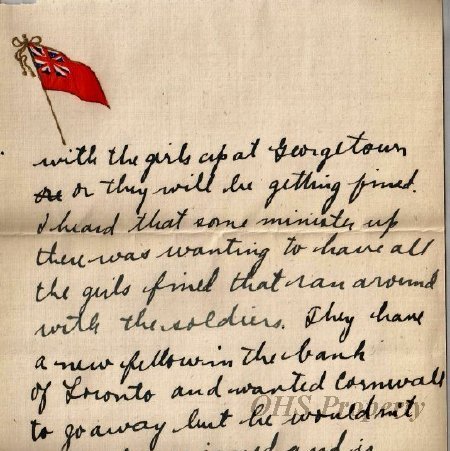 with the girls up at Georgetown
or they will be getting fined.
I heard that some minister up
there was wanting to have all
the girls fined that ran around
with the soldiers. They have
a new fellow in the bank
of Toronto and wanted Cornwall
to go away but he would n't
and is
OHS Property